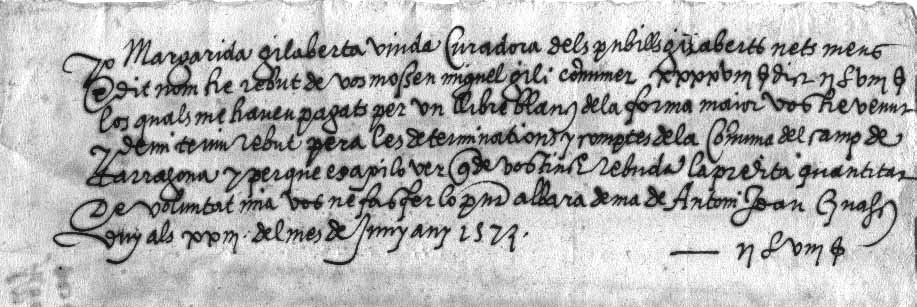 Jo Margarida gilaberta viuda Curadora dels pubills gilaberts nets meus
E dit nom he rebut de vos mossen miquel gili
los quals me haveu pagats per un llibre blanc de la forma maior vos he venut
de mi teniu rebut per a les determinations y comptes de la Comuna del camp de
Tarragona y perque es axi lo ver de vos tinch rebuda la predita quantitat
De voluntat mia vos ne fas fer lo pnt albara de ma de Antoni Joan
vuy als xxiii del mes de Juny any 157